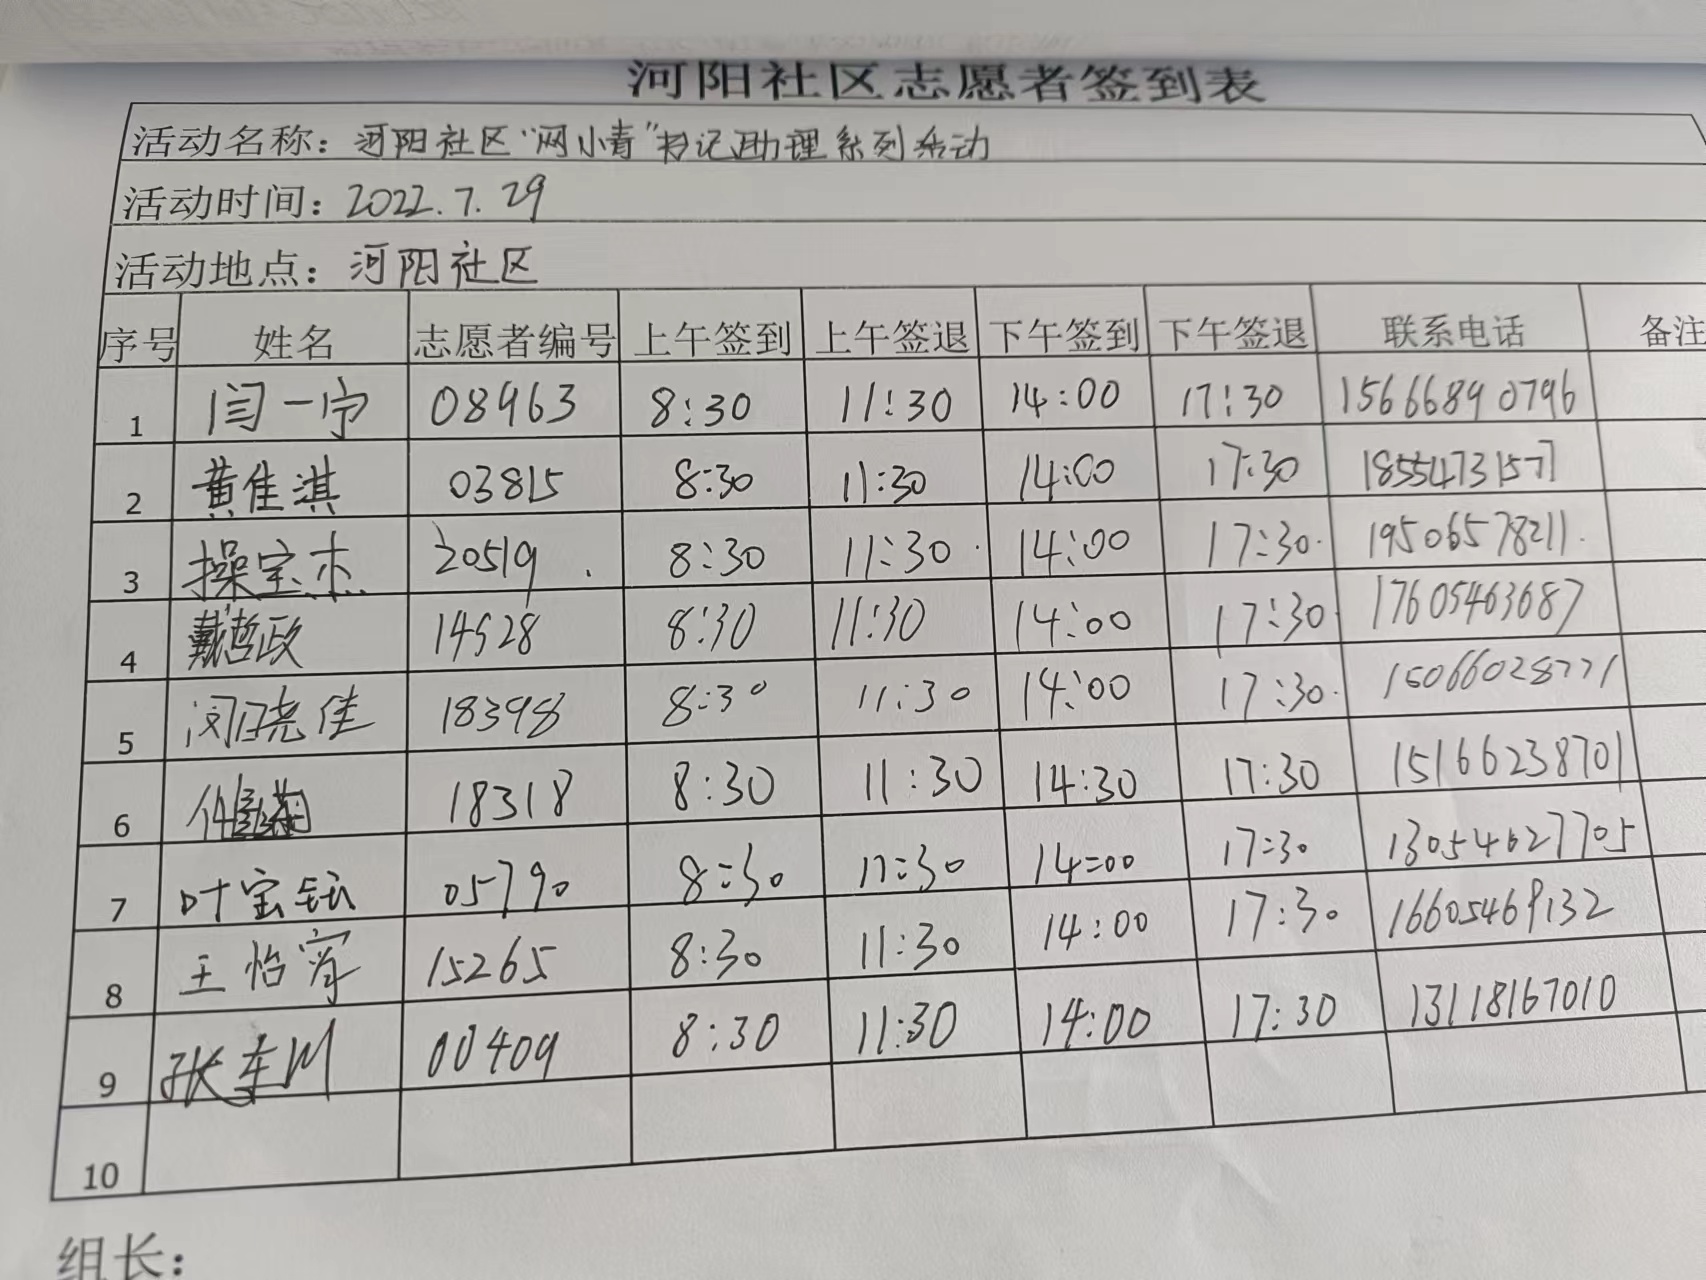 河阳社区志愿者签到表
活动名称：河阳社区“网小青”书记助理系列活动
活动时间：2022.7.29
活动地点：河阳社区
序号 姓名 志愿者编号 上午签到 上午签退 下午签到 下午签退 联系电话 备注
1 闫一宁 08963 8:30 11:30 14:00 17:30 15666890796
2 黄佳淇 03815 8:30 11:30 14:00 17:30 18554731577
3 操宝杰 20519 8:30 11:30 14:00 17:30 19506578211
4 戴哲政 14528 8:30 11:30 14:00 17:30 17605463687
5 闵晓佳 18398 8:30 11:30 14:00 17:30 15066028771
6 18318 8:30 11:30 14:30 17:30 15166238701
7 叶宝钰 05790 8:30 11:30 14:00 17:30 13054627705
8 王怡 15265 8:30 11:30 14:00 17:30 16605469132
9 张车川 00409 8:30 11:30 14:00 17:30 13118167010
10
组长：